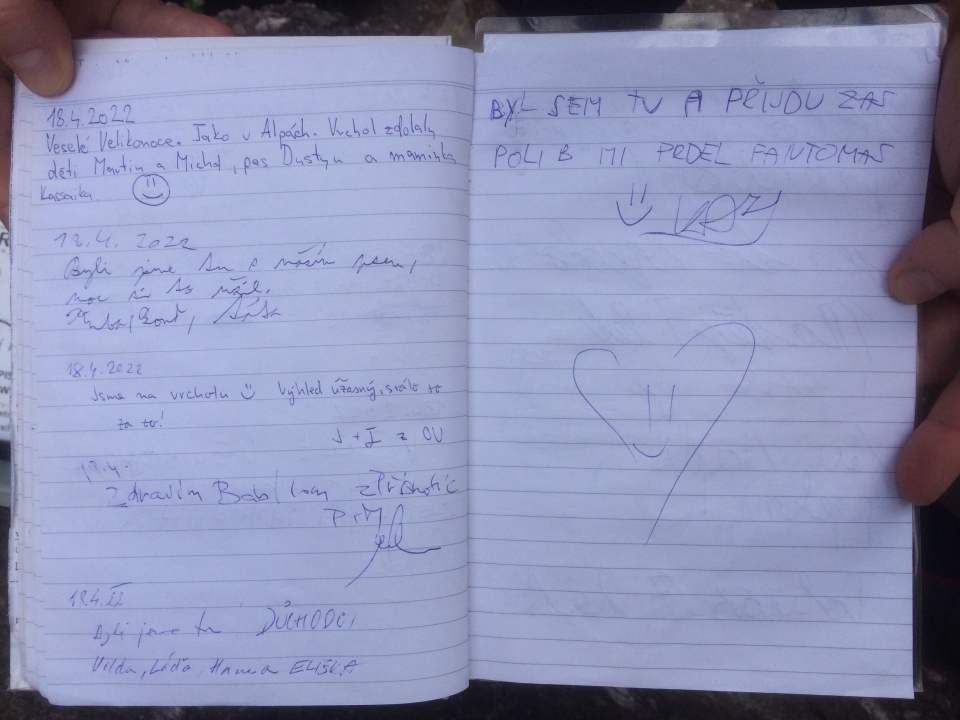 18.4.2022
Veselé Velikonoce. Jako v Alpách. Vrchol zdolaly
děti Martin a Michal, pes Dustyn a maminka
Kassaika.
18.4. 2022
Byli jsme tu s naším psem,
moc si to užil.
18.4.2022
Jsme na vrcholu Výhled úžasný, stálo to
za to!
J + I z OV
18.4.
Zdravím
P + M
18.4.22
Byli jsme tu DŮCHODCI
Vilda, Láďa, Hana a ELIŠKA
BYL SEM TU A PŘIJDU ZAS
POLIB MI PRDEL FANTOMAS